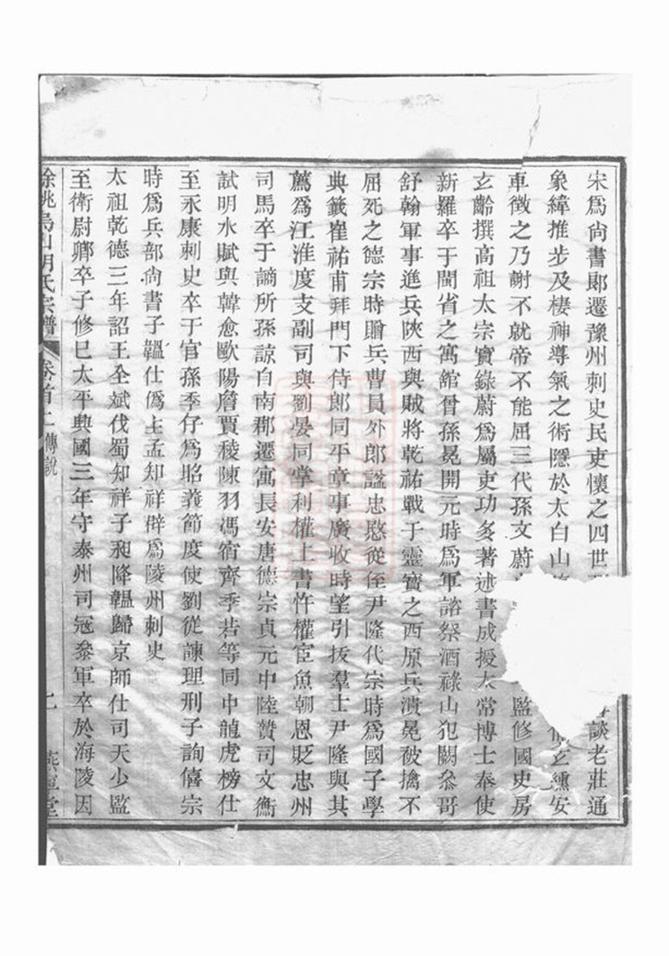 宋為尚書郎遷豫州刺史民吏懷之四世
談老莊通
象緯推步及棲神導氣之術隱於太白山
玄纁安
車徵之乃謝不就帝不能屈三代孫文蔚
監修國史房
玄齡撰高祖太宗實錄蔚為屬吏功多著述書成授太常博士奉使
新羅卒于閩省之寓舘曾孫晃開元時為軍諮祭酒祿山犯闕叅哥
舒翰軍事進兵陝西與賊將乾祐戰于靈寶之西原兵潰晃被擒不
屈死之德宗時贈兵曹員外郎諡忠愍從侄尹隆代宗時為國子學
典籤崔祐甫拜門下侍郎同平章事廣收時望引拔羣士尹隆與其
薦為江淮度支副司與劉晏同掌利權上書忤權宦魚朝恩貶忠州
司馬卒于謫所孫諒自南郡遷寓長安唐德宗貞元中陸贄司文衡
試明水賦與韓愈歐陽詹賈稜陳羽馮宿齊季若等同中龍虎榜仕
至永康刺史卒于官孫季仔為昭義節度使劉從諫理刑子詢僖宗
時為兵部尚書子韞仕偽主孟知祥辟為陵州刺史
太祖乾德三年詔王全斌伐蜀知祥子昶降韞歸京師仕司天少監
至衛尉卿卒子修己太平興國三年守泰州司冦叅軍卒於海陵因
餘姚烏山胡氏宗譜
卷首二傳說